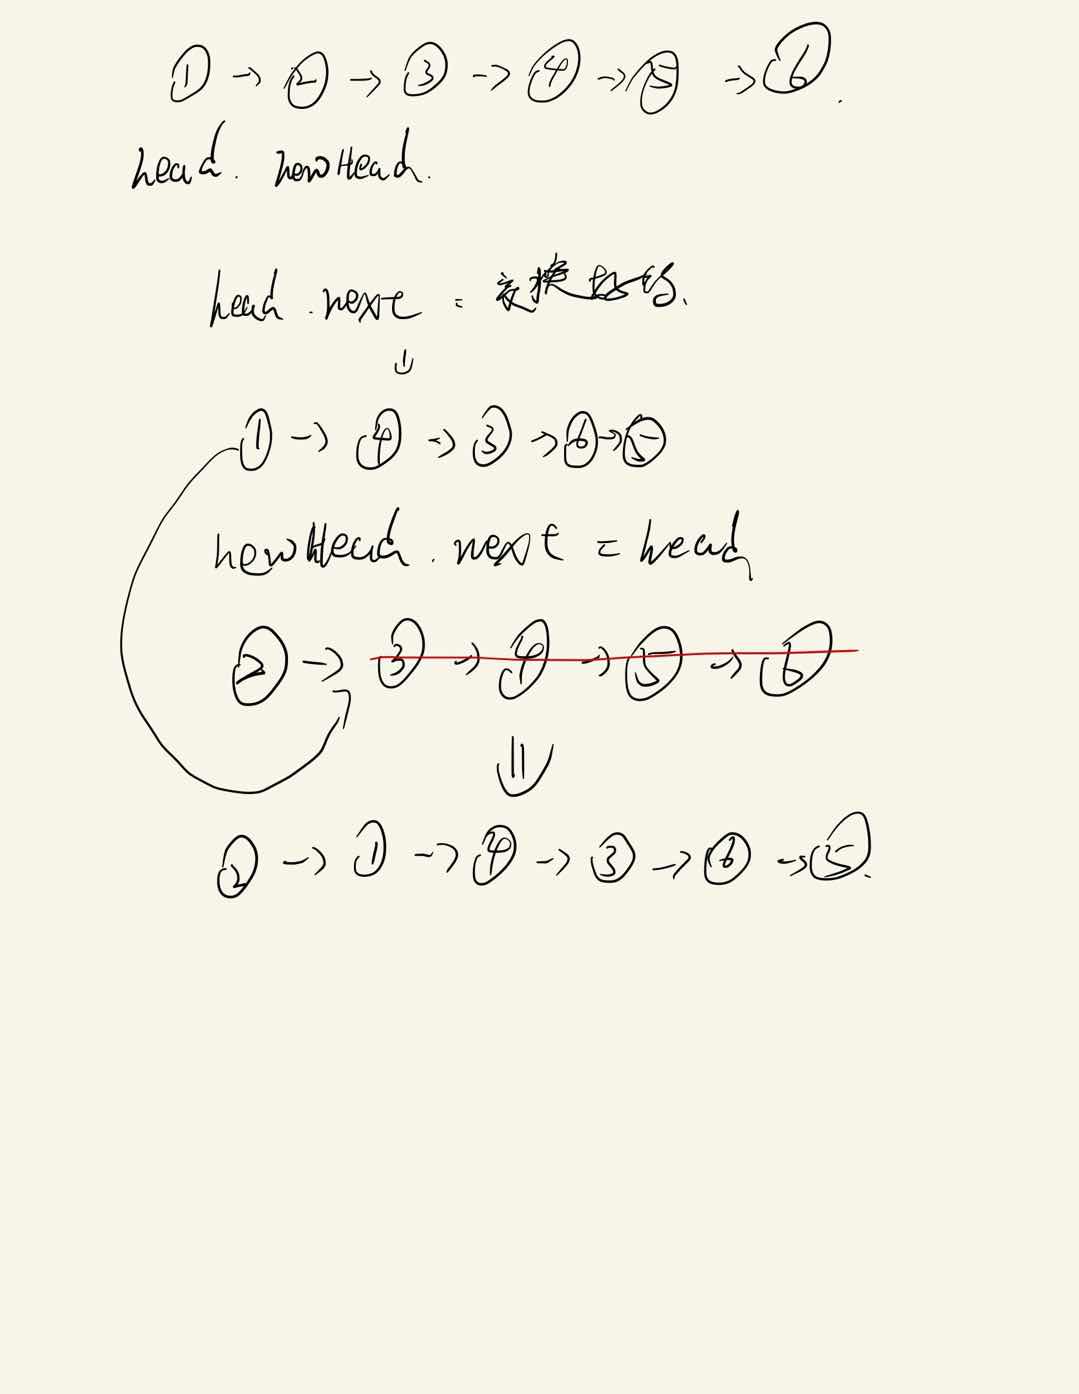 ① → ② → ③ → ④ → ⑤ → ⑥.
head. newHead.
head.next = 交换好的、
⇓
① → ④ → ③ → ⑥ → ⑤
newHead.next = head
② → ③ → ④ → ⑤ → ⑥
⇓
② → ① → ④ → ③ → ⑥ → ⑤.